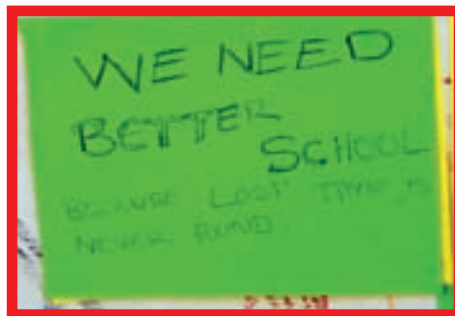 WE NEED
BETTER
SCHOOL
BECAUSE LOST TIME IS
NEVER FOUND.